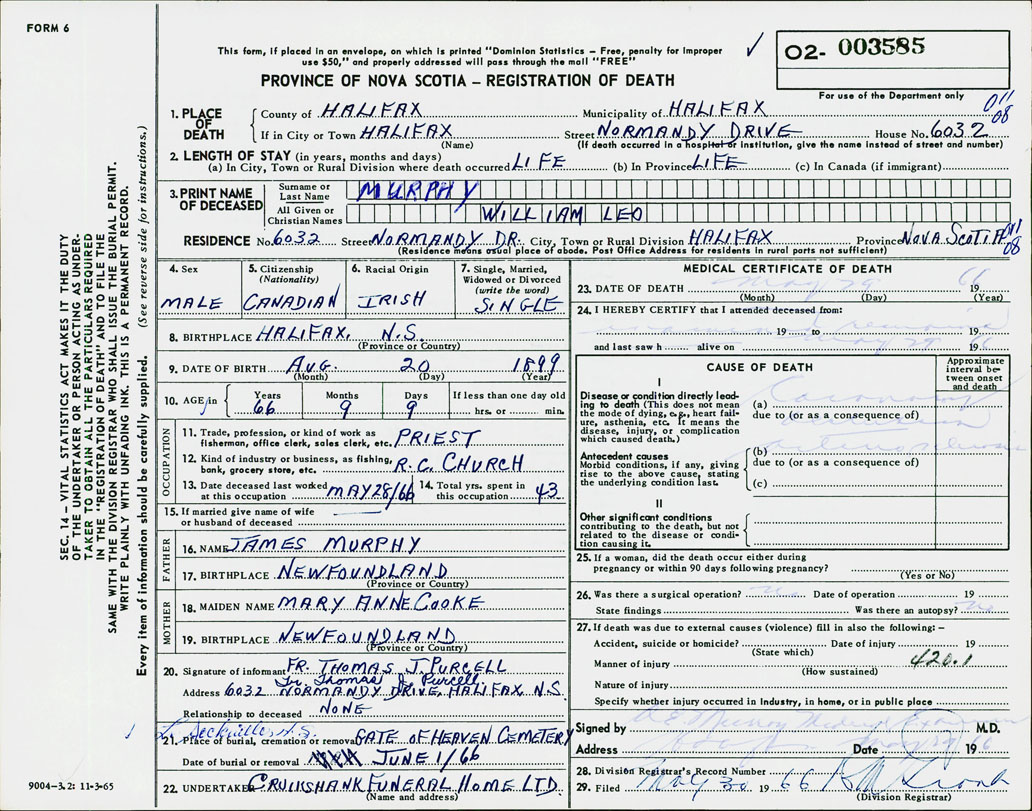 FORM 6
This form, if placed in an envelope, on which is printed "Dominion Statistics – Free, penalty for improper
use $50," and properly addressed will pass through the mail "FREE"
✓ O2- 003585
PROVINCE OF NOVA SCOTIA – REGISTRATION OF DEATH
For use of the Department only
SEC. 14 – VITAL STATISTICS ACT MAKES IT THE DUTY
OF THE UNDERTAKER OR PERSON ACTING AS UNDER-
TAKER TO OBTAIN ALL THE PARTICULARS REQUIRED
IN THE "REGISTRATION OF DEATH" AND TO FILE THE
SAME WITH THE DIVISION REGISTRAR WHO SHALL ISSUE THE BURIAL PERMIT.
WRITE PLAINLY WITH UNFADING INK. THIS IS A PERMANENT RECORD.
Every item of information should be carefully supplied. (See reverse side for instructions.)
1. PLACE OF DEATH
County of HALIFAX Municipality of HALIFAX 011 08
If in City or Town HALIFAX Street NORMANDY DRIVE House No. 6032
(Name) (If death occurred in a hospital or institution, give the name instead of street and number)
2. LENGTH OF STAY (in years, months and days)
(a) In City, Town or Rural Division where death occurred LIFE (b) In Province LIFE (c) In Canada (if immigrant)
3. PRINT NAME OF DECEASED
Surname or Last Name MURPHY
All Given or Christian Names WILLIAM LEO
RESIDENCE No. 6032 Street NORMANDY DR. City, Town or Rural Division HALIFAX Province NOVA SCOTIA 011 08
(Residence means usual place of abode. Post Office Address for residents in rural parts not sufficient)
4. Sex MALE
5. Citizenship (Nationality) CANADIAN
6. Racial Origin IRISH
7. Single, Married, Widowed or Divorced (write the word) SINGLE
8. BIRTHPLACE HALIFAX, N.S.
(Province or Country)
9. DATE OF BIRTH AUG. 20 1899
(Month) (Day) (Year)
10. AGE in Years 66 Months 9 Days 9 If less than one day old hrs. or min.
OCCUPATION
11. Trade, profession, or kind of work as fisherman, office clerk, sales clerk, etc. PRIEST
12. Kind of industry or business, as fishing, bank, grocery store, etc. R.C. CHURCH
13. Date deceased last worked at this occupation MAY 28/66 14. Total yrs. spent in this occupation 43
15. If married give name of wife or husband of deceased
FATHER
16. NAME JAMES MURPHY
17. BIRTHPLACE NEWFOUNDLAND
(Province or Country)
MOTHER
18. MAIDEN NAME MARY ANNE COOKE
19. BIRTHPLACE NEWFOUNDLAND
(Province or Country)
20. Signature of informant FR. THOMAS J. PURCELL
Fr. Thomas J. Purcell
Address 6032 NORMANDY DRIVE, HALIFAX N.S
Relationship to deceased NONE
Sackville N.S.
21. Place of burial, cremation or removal GATE OF HEAVEN CEMETERY
Date of burial or removal JUNE 1/66
22. UNDERTAKER CRUIKSHANK FUNERAL HOME LTD.
(Name and address)
9004-3.2: 11-3-65
MEDICAL CERTIFICATE OF DEATH
23. DATE OF DEATH May 29 19 66
(Month) (Day) (Year)
24. I HEREBY CERTIFY that I attended deceased from:
19 to 19
and last saw h alive on May 29 19 66
CAUSE OF DEATH
Approximate interval between onset and death
I
Disease or condition directly leading to death (This does not mean the mode of dying, e.g., heart failure, asthenia, etc. It means the disease, injury, or complication which caused death.)
(a) Coronary
due to (or as a consequence of)
Antecedent causes
Morbid conditions, if any, giving rise to the above cause, stating the underlying condition last.
(b)
due to (or as a consequence of)
(c)
II
Other significant conditions contributing to the death, but not related to the disease or condition causing it.
25. If a woman, did the death occur either during pregnancy or within 90 days following pregnancy?
(Yes or No)
26. Was there a surgical operation? No Date of operation 19
State findings Was there an autopsy? No
27. If death was due to external causes (violence) fill in also the following: –
Accident, suicide or homicide? Date of injury 19
(State which)
Manner of injury 420.1
(How sustained)
Nature of injury
Specify whether injury occurred in Industry, in home, or in public place
Signed by M.D.
Address Date May 29 19 66
28. Division Registrar's Record Number
29. Filed May 30 1966
(Division Registrar)